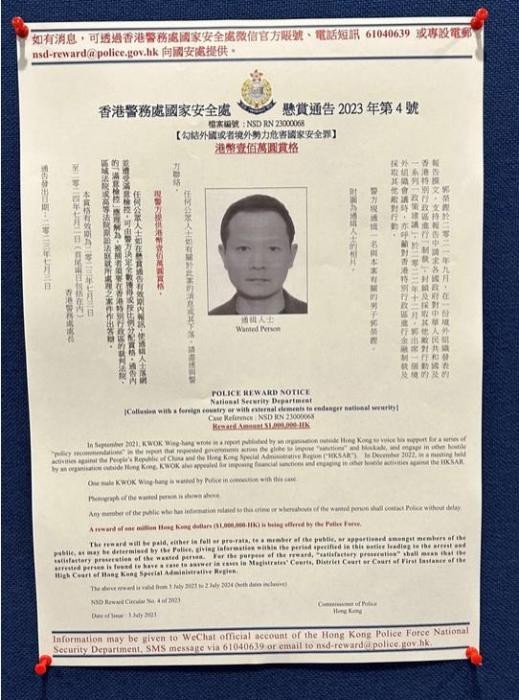 如有消息，可透過香港警務處國家安全處微信官方賬號、電話短訊 61040639 或專設電郵
nsd-reward@police.gov.hk 向國安處提供。
香港警務處國家安全處 懸賞通告 2023 年第 4 號
檔案編號：NSD RN 23000068
【勾結外國或者境外勢力危害國家安全罪】
港幣壹佰萬圓賞格
郭榮鏗於二○二一年九月，在一份境外組織發表的
報告撰文，支持報告中請求各國政府對中華人民共和國及
香港特別行政區進行「制裁」、封鎖及採取其他敵對行動的
一系列「政策建議」。於二○二二年十二月，郭出席一個境
外組織會議時，亦呼籲對香港特別行政區進行金融制裁及
採取其他敵對行動。
警方現通緝一名與本案有關的男子郭榮鏗。
附圖為通緝人士的相片。
任何公眾人士如有關於此案的消息或其下落，請盡速與警
方聯絡。
現警方提供港幣壹佰萬圓賞格。
任何公眾人士如在懸賞通告有效期內報訊，使通緝人士落網
並達滿意檢控，可由警方決定全數獲得或按比例分配賞格。通告內
的「滿意檢控」應理解為，被捕者須要在香港特別行政區的裁判法院、
區域法院或高等法院原訟法庭就所處理之案件作出答辯。
本賞格有效期為二○二三年七月三日
至二○二四年七月二日（首尾兩日包括在內）
香港警務處處長
通告發出日期：二○二三年七月三日
通緝人士
Wanted Person
POLICE REWARD NOTICE
National Security Department
[Collusion with a foreign country or with external elements to endanger national security]
Case Reference : NSD RN 23000068
Reward Amount $1,000,000-HK
In September 2021, KWOK Wing-hang wrote in a report published by an organisation outside Hong Kong to voice his support for a series of
"policy recommendations" in the report that requested governments across the globe to impose "sanctions" and blockade, and engage in other hostile
activities against the People's Republic of China and the Hong Kong Special Administrative Region ("HKSAR"). In December 2022, in a meeting held
by an organisation outside Hong Kong, KWOK also appealed for imposing financial sanctions and engaging in other hostile activities against the HKSAR.
One male KWOK Wing-hang is wanted by Police in connection with this case.
Photograph of the wanted person is shown above.
Any member of the public who has information related to this crime or whereabouts of the wanted person shall contact Police without delay.
A reward of one million Hong Kong dollars ($1,000,000-HK) is being offered by the Police Force.
The reward will be paid, either in full or pro-rata, to a member of the public, or apportioned amongst members of the
public, as may be determined by the Police, giving information within the period specified in this notice leading to the arrest and
satisfactory prosecution of the wanted person. For the purpose of the reward, "satisfactory prosecution" shall mean that the
arrested person is found to have a case to answer in cases in Magistrates' Courts, District Court or Court of First Instance of the
High Court of Hong Kong Special Administrative Region.
The above reward is valid from 3 July 2023 to 2 July 2024 (both dates inclusive)
NSD Reward Circular No. 4 of 2023
Commissioner of Police
Hong Kong
Date of Issue : 3 July 2023
Information may be given to WeChat official account of the Hong Kong Police Force National
Security Department, SMS message via 61040639 or email to nsd-reward@police.gov.hk.